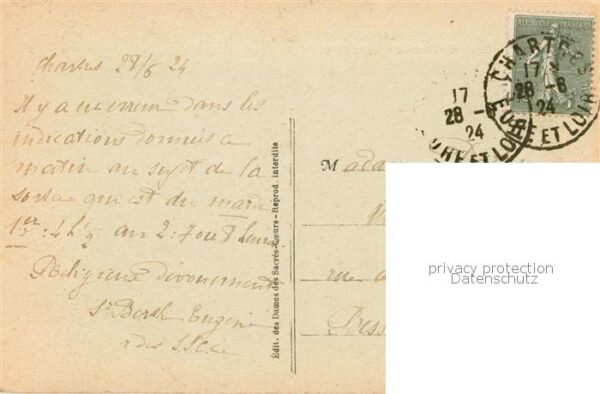 Chartres 28/6 24
Il y a eu erreur dans les
indications données ce
matin au sujet de la
sortie qui est du mardi
1er: 4h½ au 2: 7 ou 8 heures.
Religieux dévouement
Sr Berthe Eugénie
r des SS.CC.
Édit. des Dames des Sacrés-Cœurs - Reprod. interdite
REPUBLIQUE FRANÇAISE
CHARTRES
17
28 -6
24
EURE ET LOIR
17
28 -6
24
EURE ET LOIR
Mada
rue
privacy protection
Datenschutz